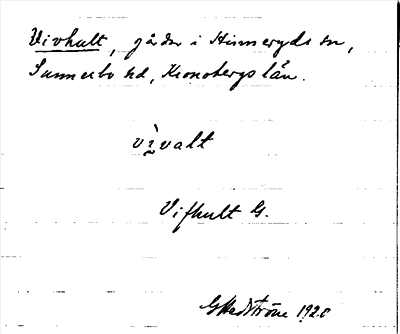 Vivhult, gårdar i Hinneryds sn,
Sunnerbo hd, Kronobergs län.
vìvalt
Vifhult G.
G Hedström 1920